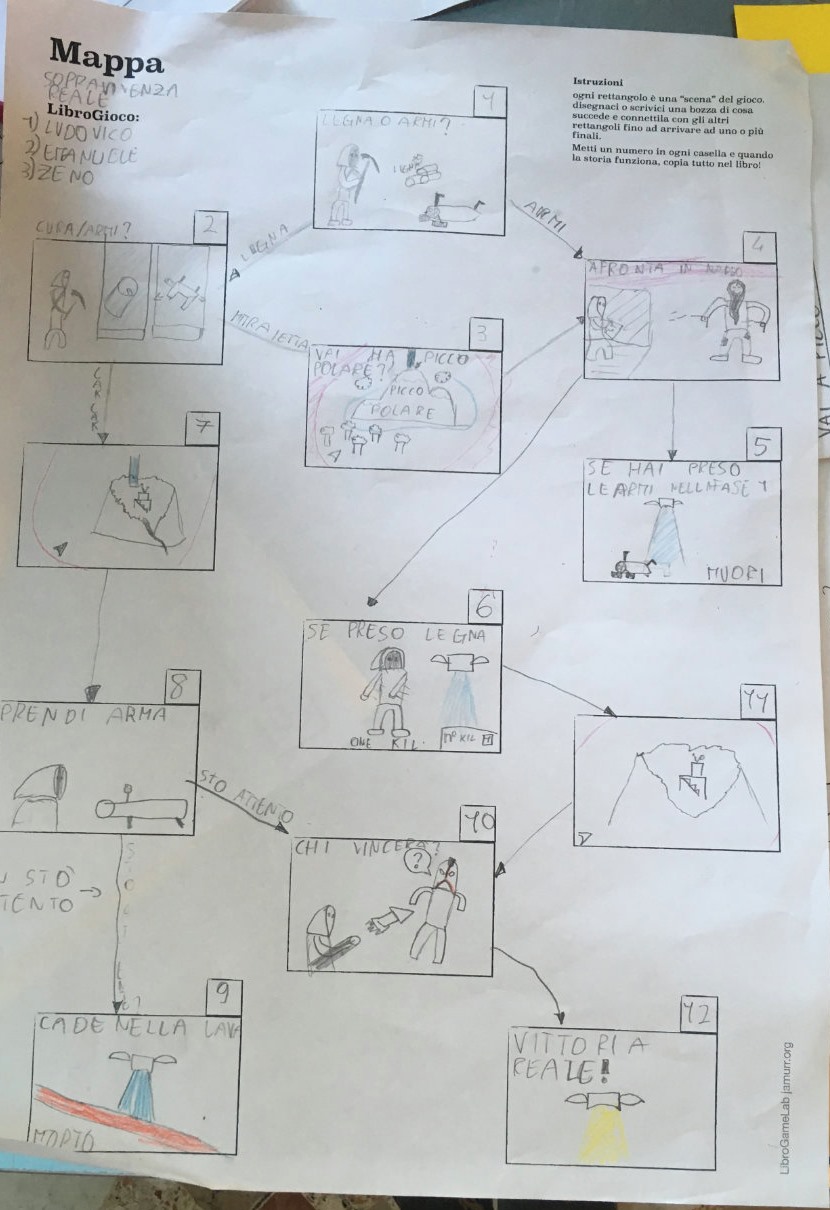 Mappa
SOPRAVVIVENZA
REALE
LibroGioco:
1) LUDOVICO
2) EMANUELE
3) ZENO
Istruzioni
ogni rettangolo è una "scena" del gioco.
disegnaci o scrivici una bozza di cosa
succede e connettila con gli altri
rettangoli fino ad arrivare ad uno o più
finali.
Metti un numero in ogni casella e quando
la storia funziona, copia tutto nel libro!
1
LEGNA O ARMI?
LEGNA
ARMI
2
CURA/ARMI?
MITRAGLIETTA
3
VAI HA PICCO
POLARE?
PICCO
POLARE
4
AFRONTA IN
5
SE HAI PRESO
LE ARMI NELLA FASE 1
MUORI
6
SE PRESO LEGNA
ONE KIL.
7
8
PRENDI ARMA
STO ATTENTO
STÒ
TENTO
9
CADE NELLA LAVA
MORTO
10
CHI VINCERÀ?
?
11
12
VITTORIA
REALE!
LibroGameLab jamurr.org